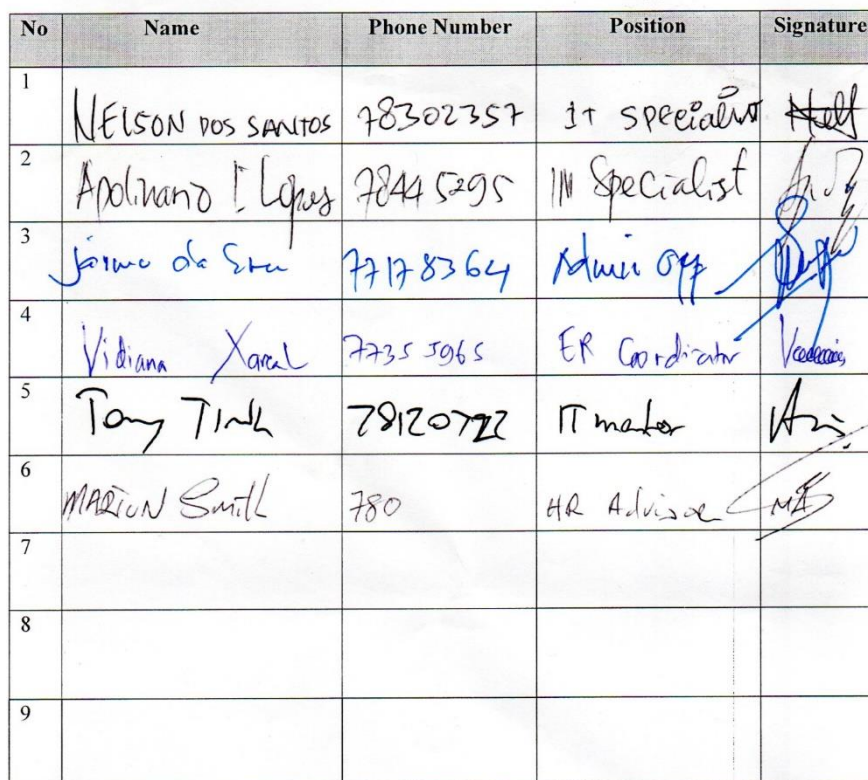 No Name Phone Number Position Signature
1 NELSON DOS SANTOS 78302357 IT specialist
2 Apolinario Lopes 78445295 IN Specialist
3 da 77178364 Admin Off
4 Vidiana Xareal 77355965 ER Coordinator
5 Tony 78120722 IT mentor
6 MARION Smith 780 HR Advisor
7
8
9